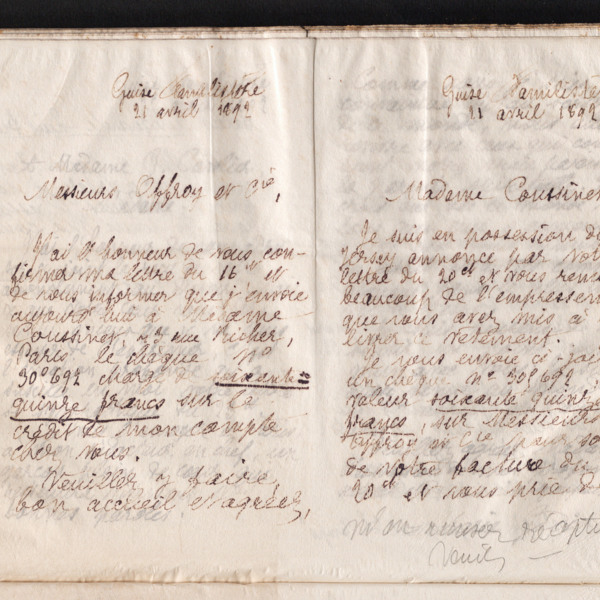 Guise Familistère
21 avril 1892
Messieurs Offroy et Cie,
J'ai l'honneur de vous con-
firmer ma lettre du 16 et
de vous informer que j'envoie
aujourd'hui à Madame
Coussinet, 43 rue Richer,
Paris le chèque n°
30692 Marge de soixante
quinze francs sur le
crédit de mon compte
chez vous.
Veuillez y faire
bon accueil et agréer,
Guise Familistè
21 avril 1892
Madame Coussinet
Je suis en possession du
jersey annoncé par votre
lettre du 20 et et vous reme
beaucoup de l'empressem
que vous avez mis à
livrer ce vêtement.
Je vous envoie ci-joi
un chèque n° 30692
valeur soixante quinze
francs, sur Messieurs
Offroy et Cie pour so
de votre facture du
20 ct et vous prie de
m'en